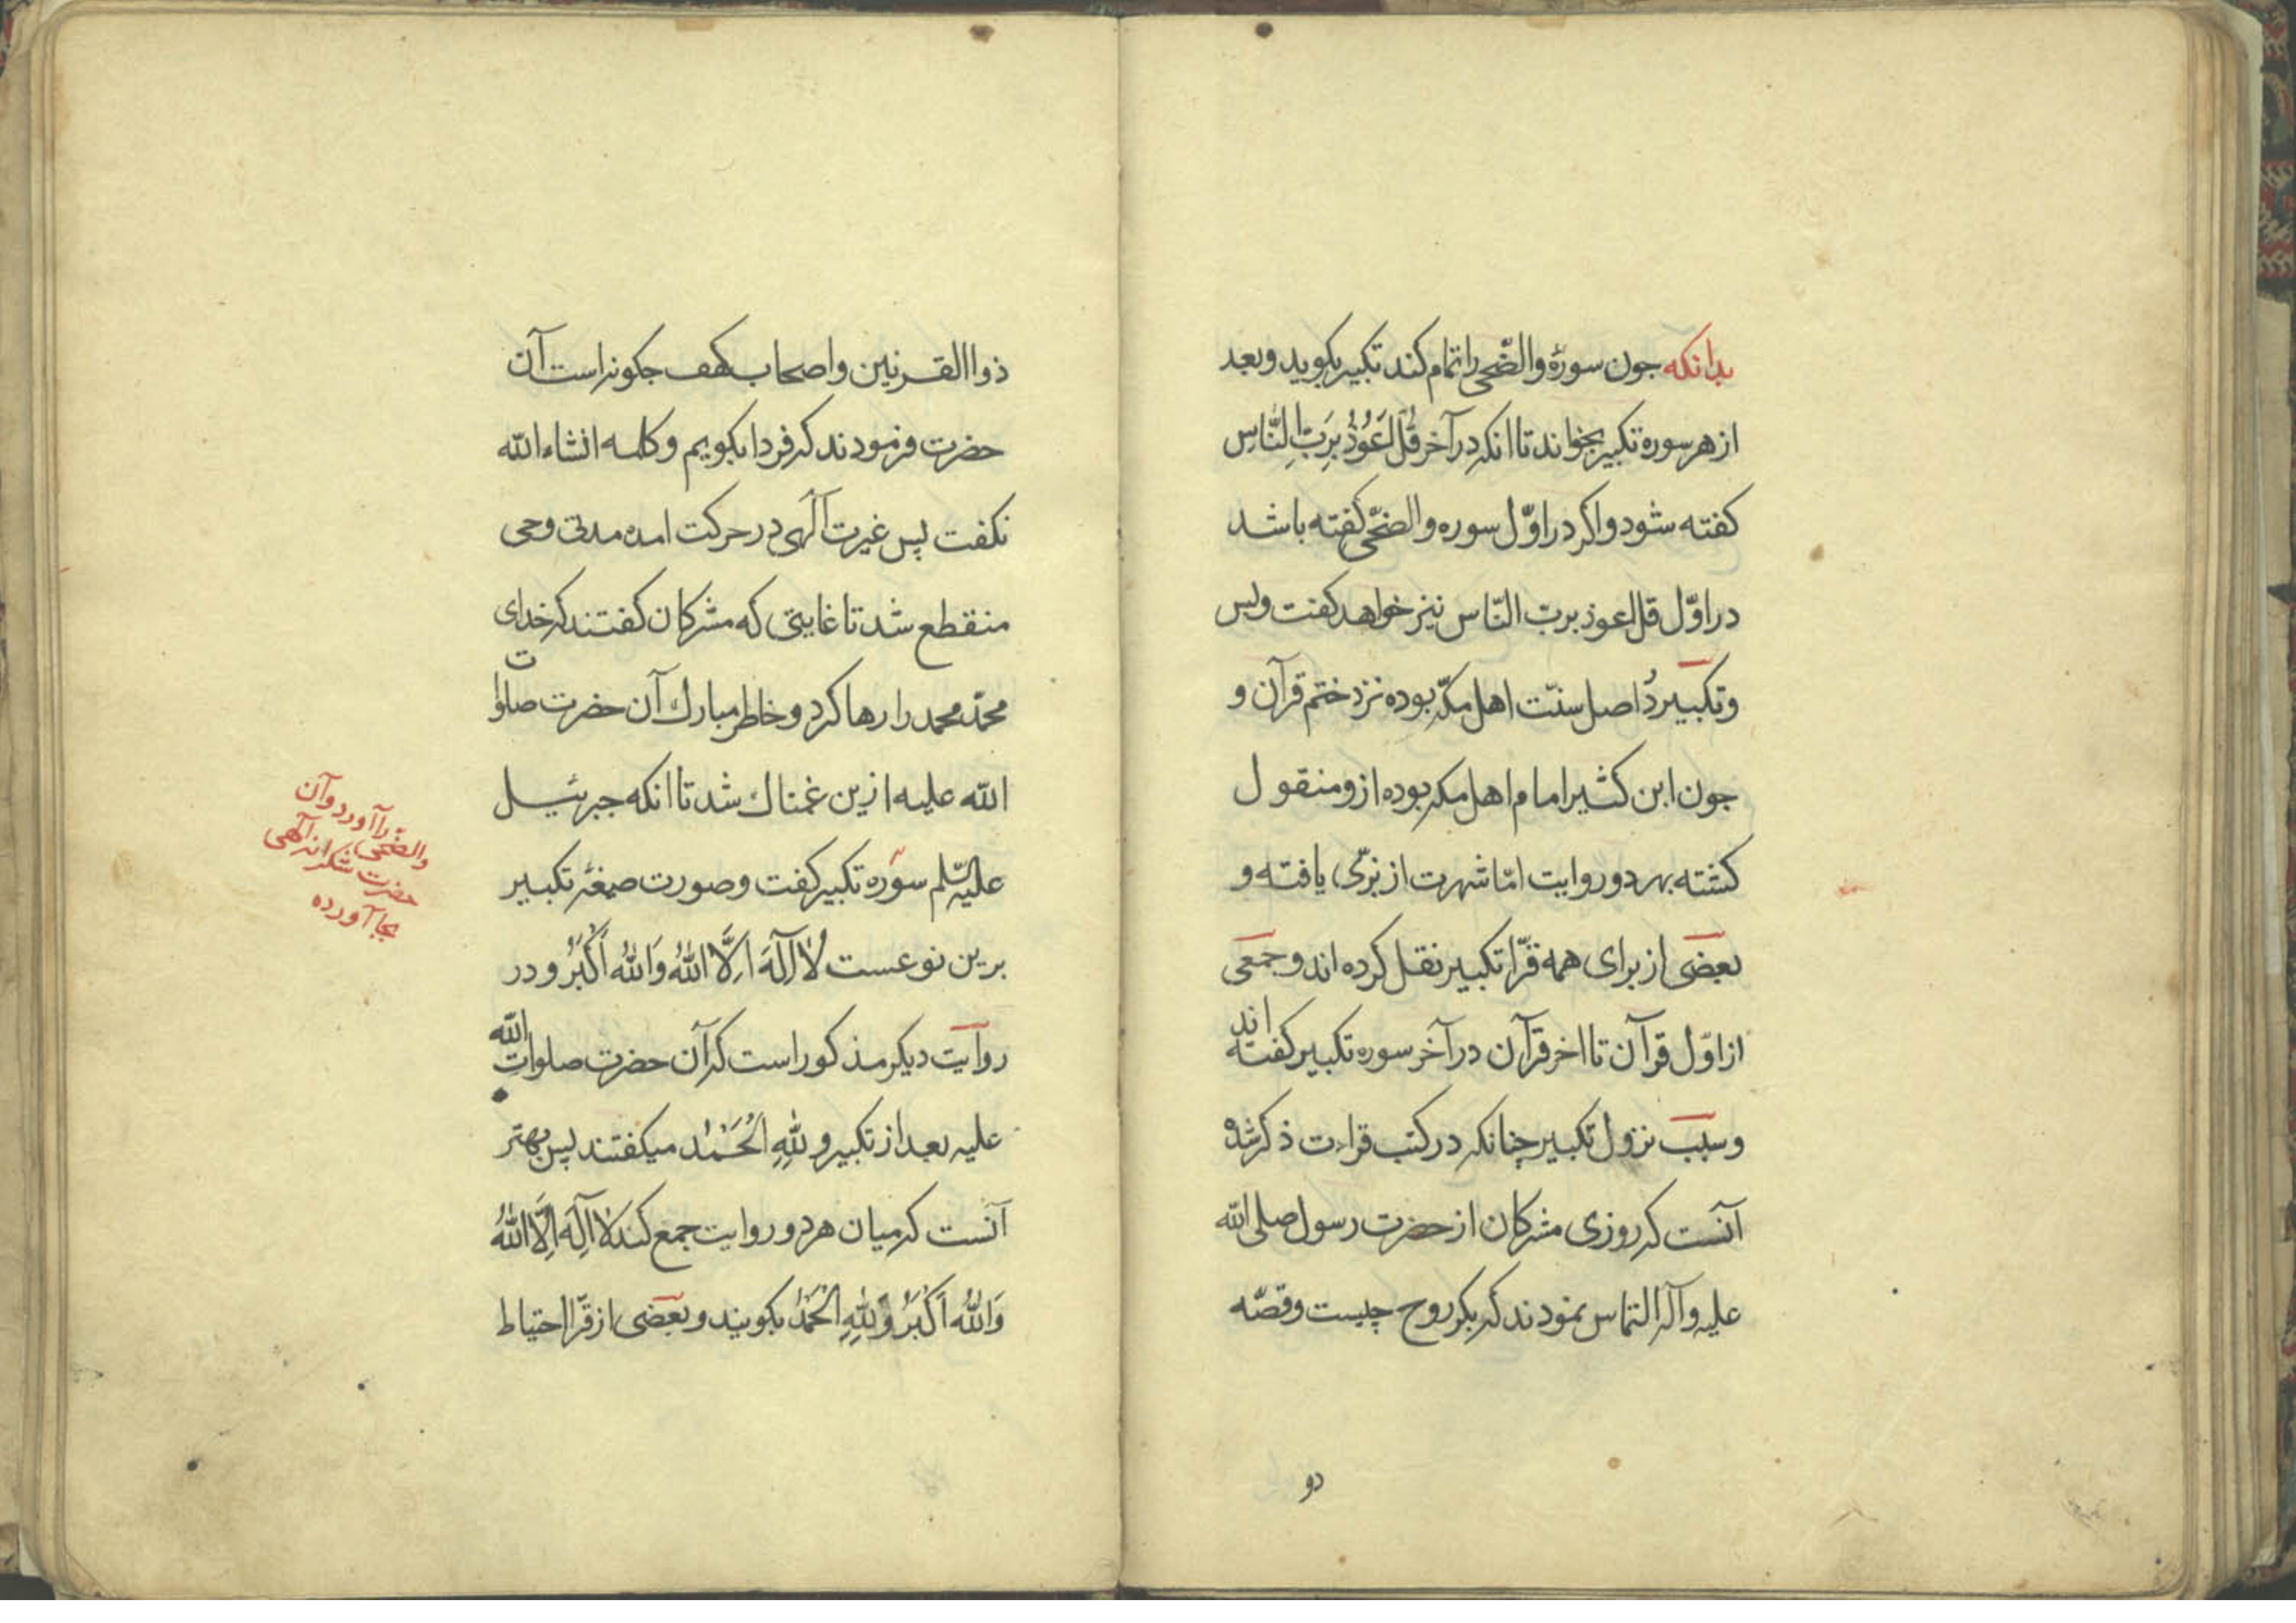 بدانکه جون سورهٔ والضّحی را تمام کند تکبیر بکوید وبعد
از هر سوره تکبیر بخواند تا انکه در آخر قُل اَعُوذُ بِرَبِّ النَّاسِ
کفته شود واکر در اوّل سوره والضّحی کفته باشد
در اوّل قل اعوذ بربّ النّاس نیز خواهد کفت وبس
وتکبیر دُ اصل سنّت اهل مکّه بوده نزد ختم قرآن و
جون ابن کثیر امام اهل مکه بوده ازو منقول
کشته بهر دو روایت امّا شهرت از بزّی یافته و
بعضی از برای همه قرّا تکبیر نقل کرده اند وجمعی
از اوّل قرآن تا اخر قرآن در آخر سوره تکبیر کفته اند
وسبب نزول تکبیر چنانکه در کتب قراءت ذکر شده
آنست که روزی مشرکان از حضرت رسول صلی الله
علیه وآله التماس نمودند که بکو روح چیست وقصّه
دو
ذوا القرنین واصحاب کهف جکونه است آن
حضرت فرمودند که فردا بکویم وکلمه انشاء الله
نکفت پس غیرت آلهی در حرکت امده مدتی وحی
منقطع شد تا غایتی که مشرکان کفتند که خدای
محمّد محمد را رها کرد وخاطر مبارك آن حضرت صلوات
الله علیه ازین غمناك شد تا انکه جبرئیل
علیه سّلم سوره تکبیر کفت وصورت صیغهٔ تکبیر
برین نوعست لَا اِلٓهَ اِلَّا اللهُ وَاللهُ اَکْبَرُ ودر
روایت دیکر مذکور است که آن حضرت صلوات الله
علیه بعد از تکبیر ولِلّهِ الْحَمْد میکفتند پس بهتر
آنست که میان هر دو روایت جمع کند لَا اِلٓهَ اِلَّا اللهُ
وَاللهُ اَکْبَرُ وَلِلّهِ الْحَمْدُ بکویند وبعضی از قرّا احتیاط
والضّحی را آورد وآن
حضرت شکرانه آلهی
بجا آورده